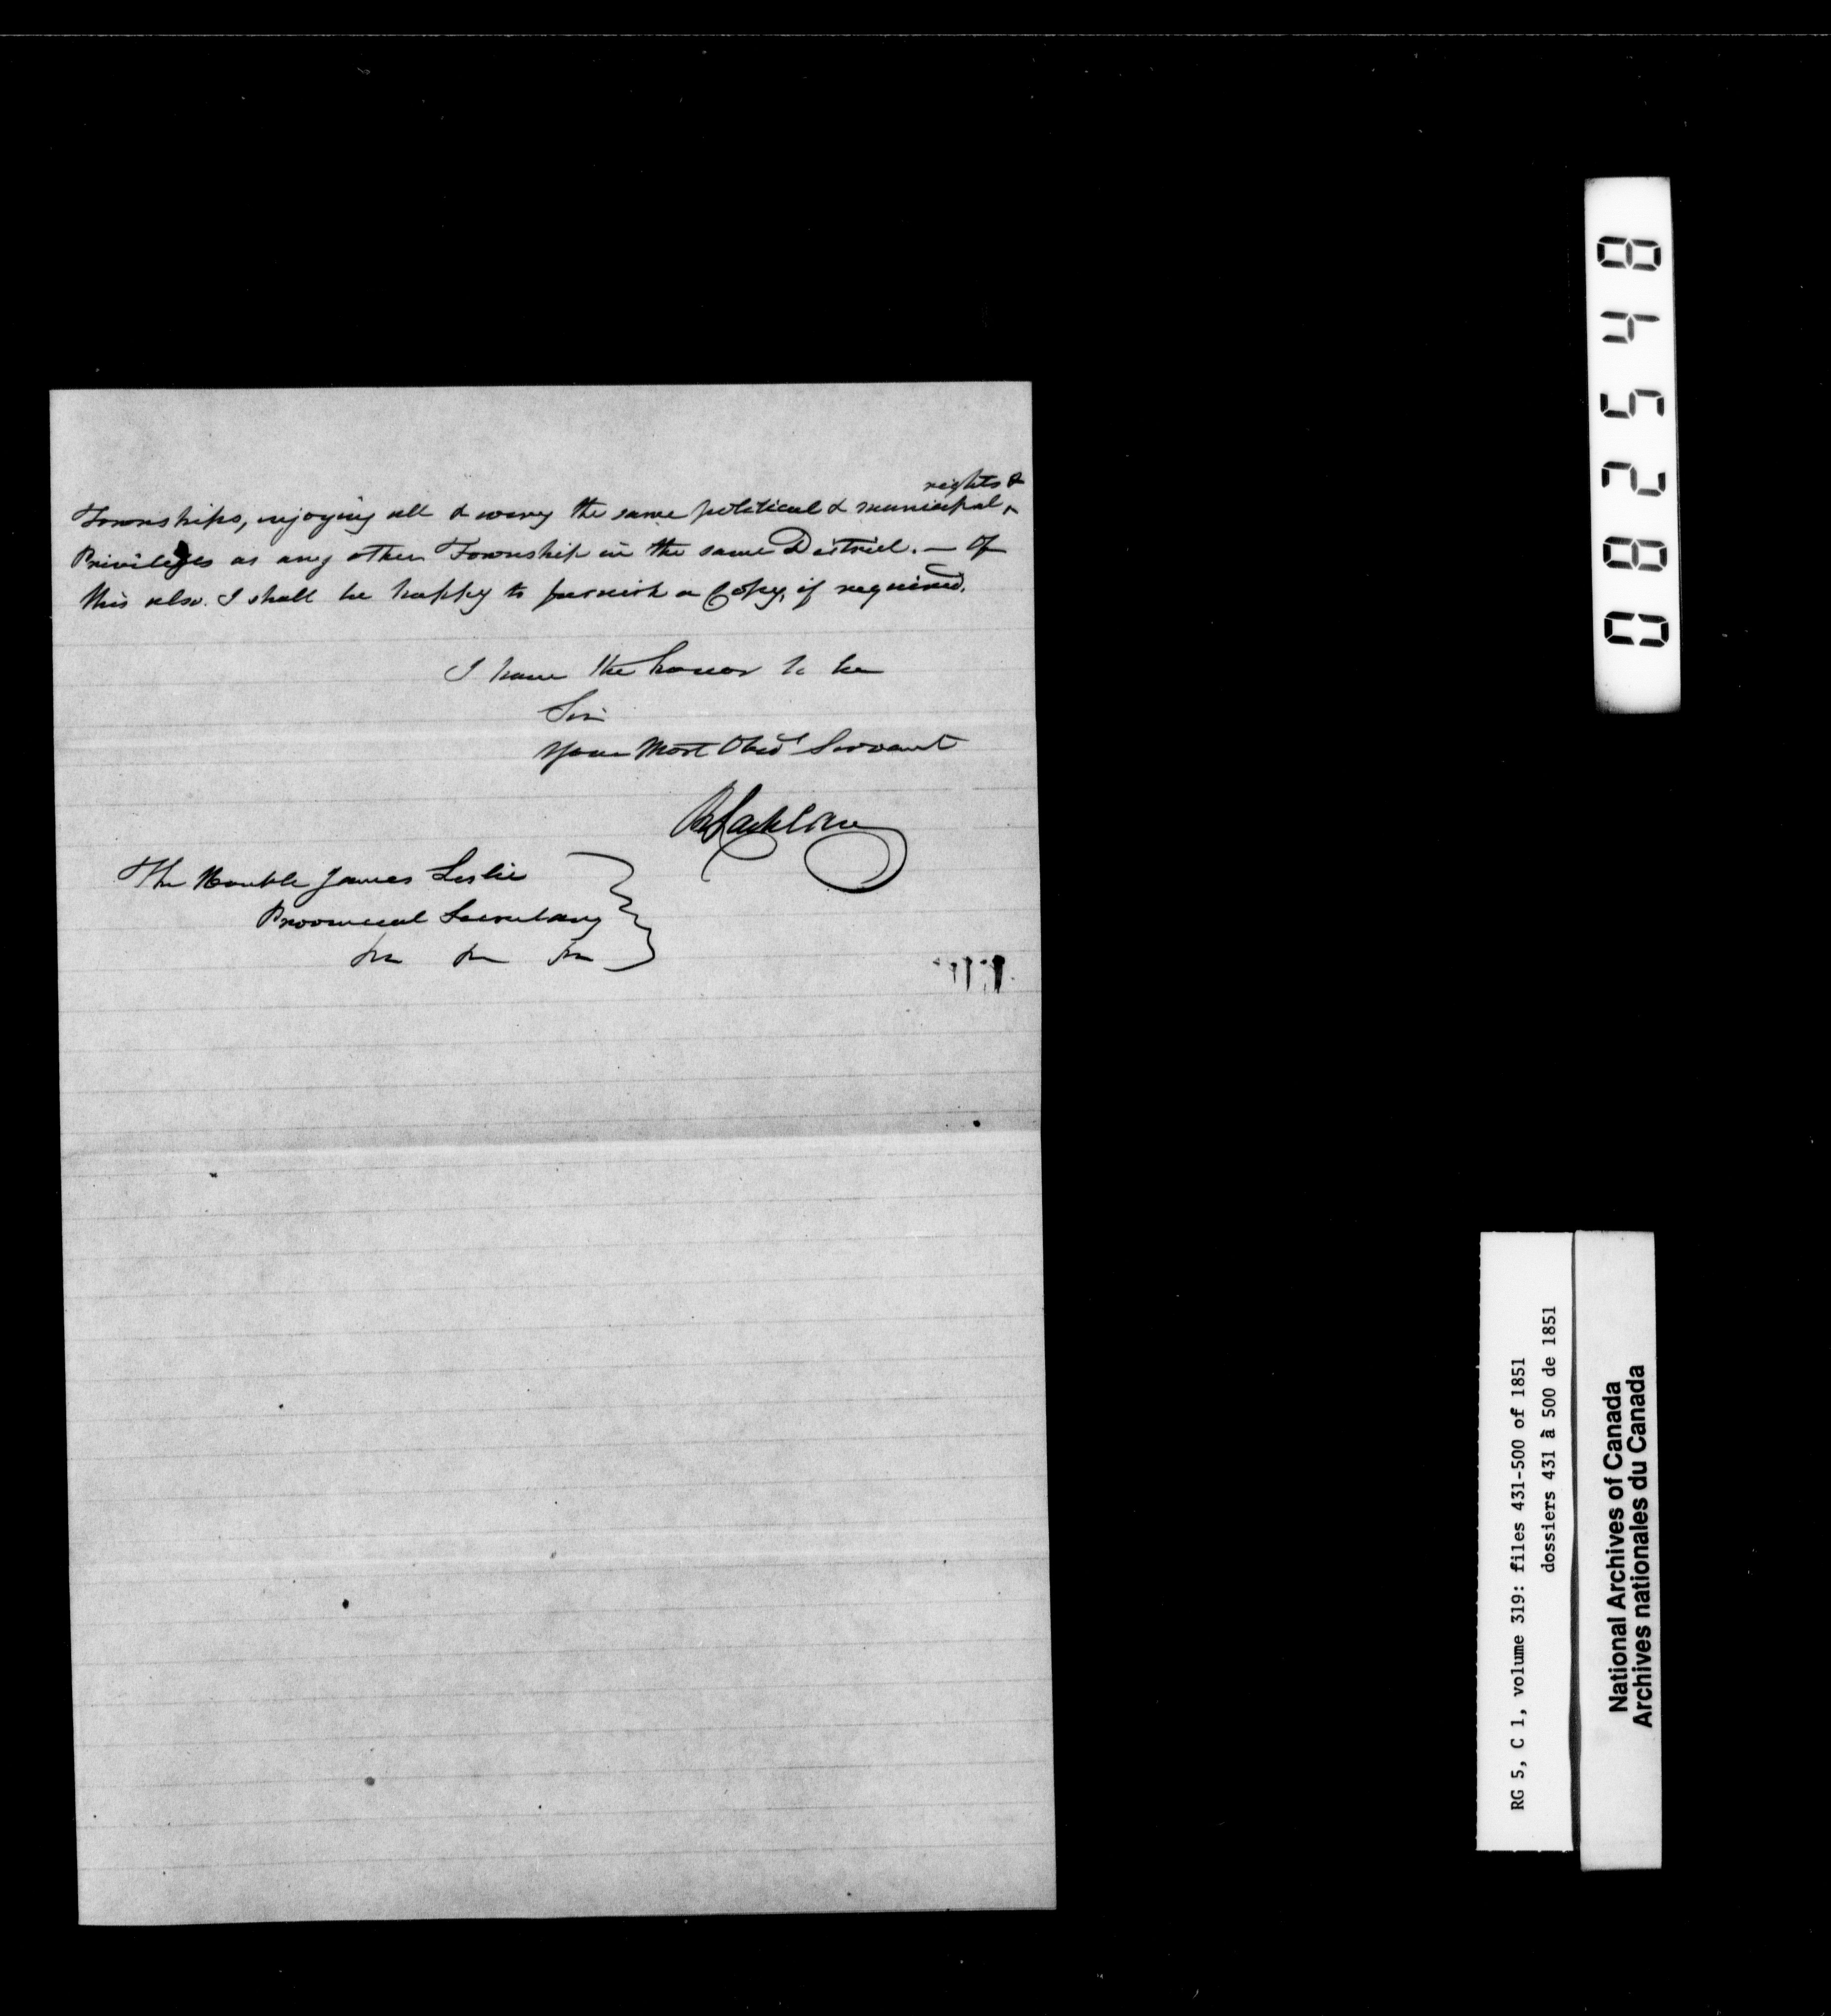 Townships, enjoying all & every the same political & municipal ^ rights &
Privileges as any other Township in the same District. — Of
this also I shall be happy to furnish a Copy, if required.
I have the honor to be
Sir
Your Most Obed^t Servant
The Honble James Leslie
Provincial Secretary
082548
RG 5, C 1, volume 319: files 431-500 of 1851
dossiers 431 à 500 de 1851
National Archives of Canada
Archives nationales du Canada